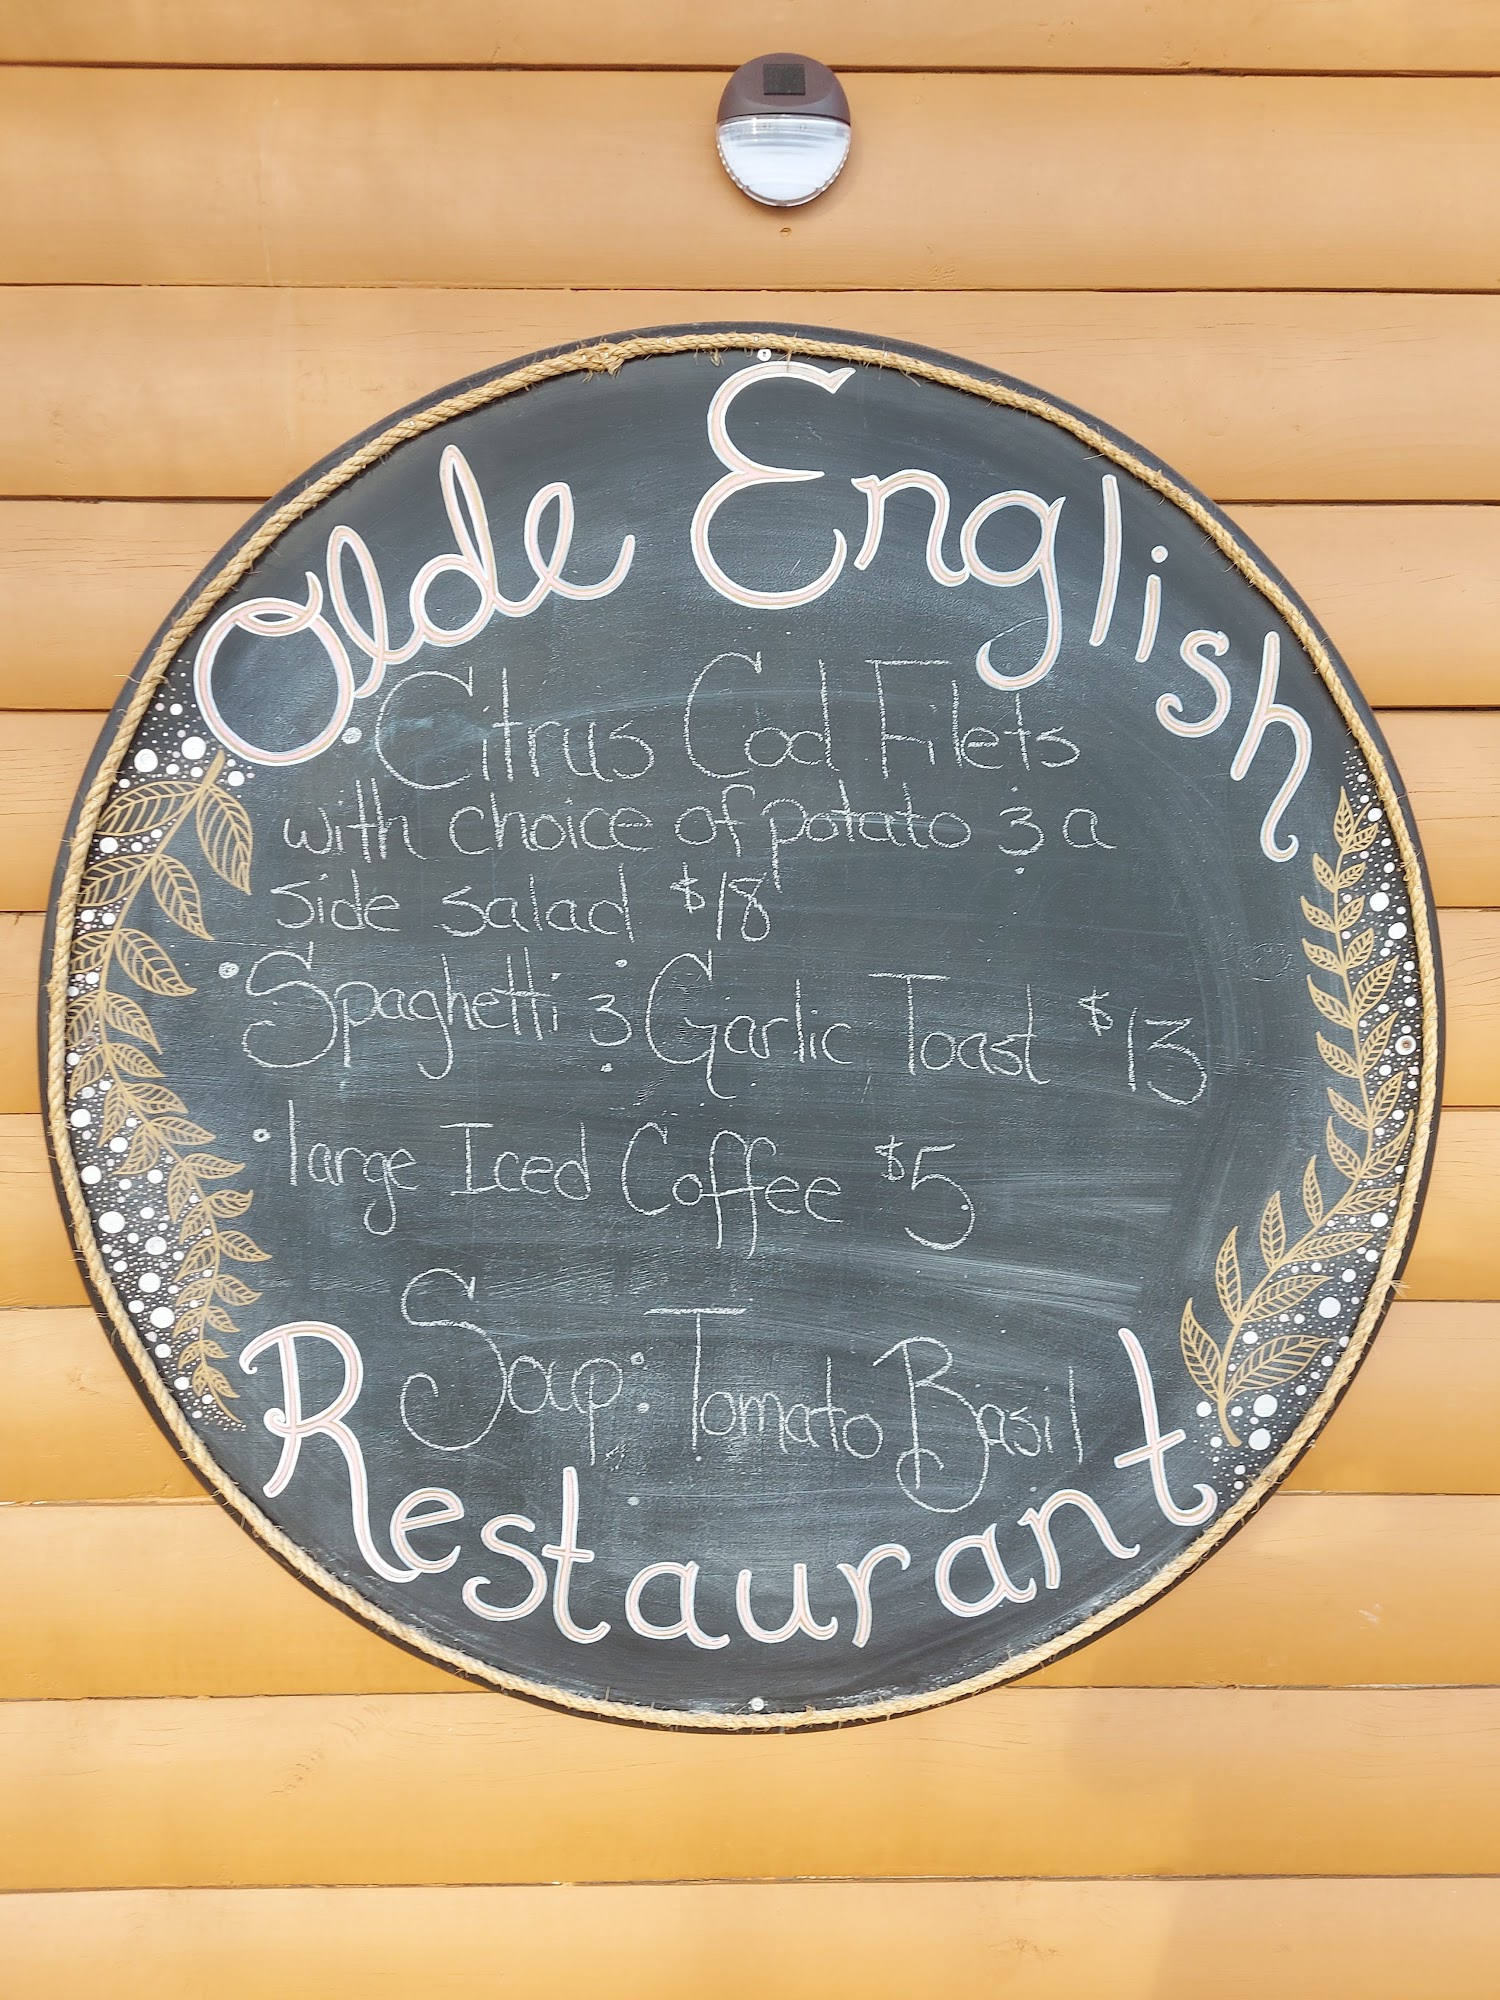 Olde English
• Citrus Cod Filets
with choice of potato & a
side salad $18
• Spaghetti & Garlic Toast $13
• large Iced Coffee $5
Soup: Tomato Basil
Restaurant